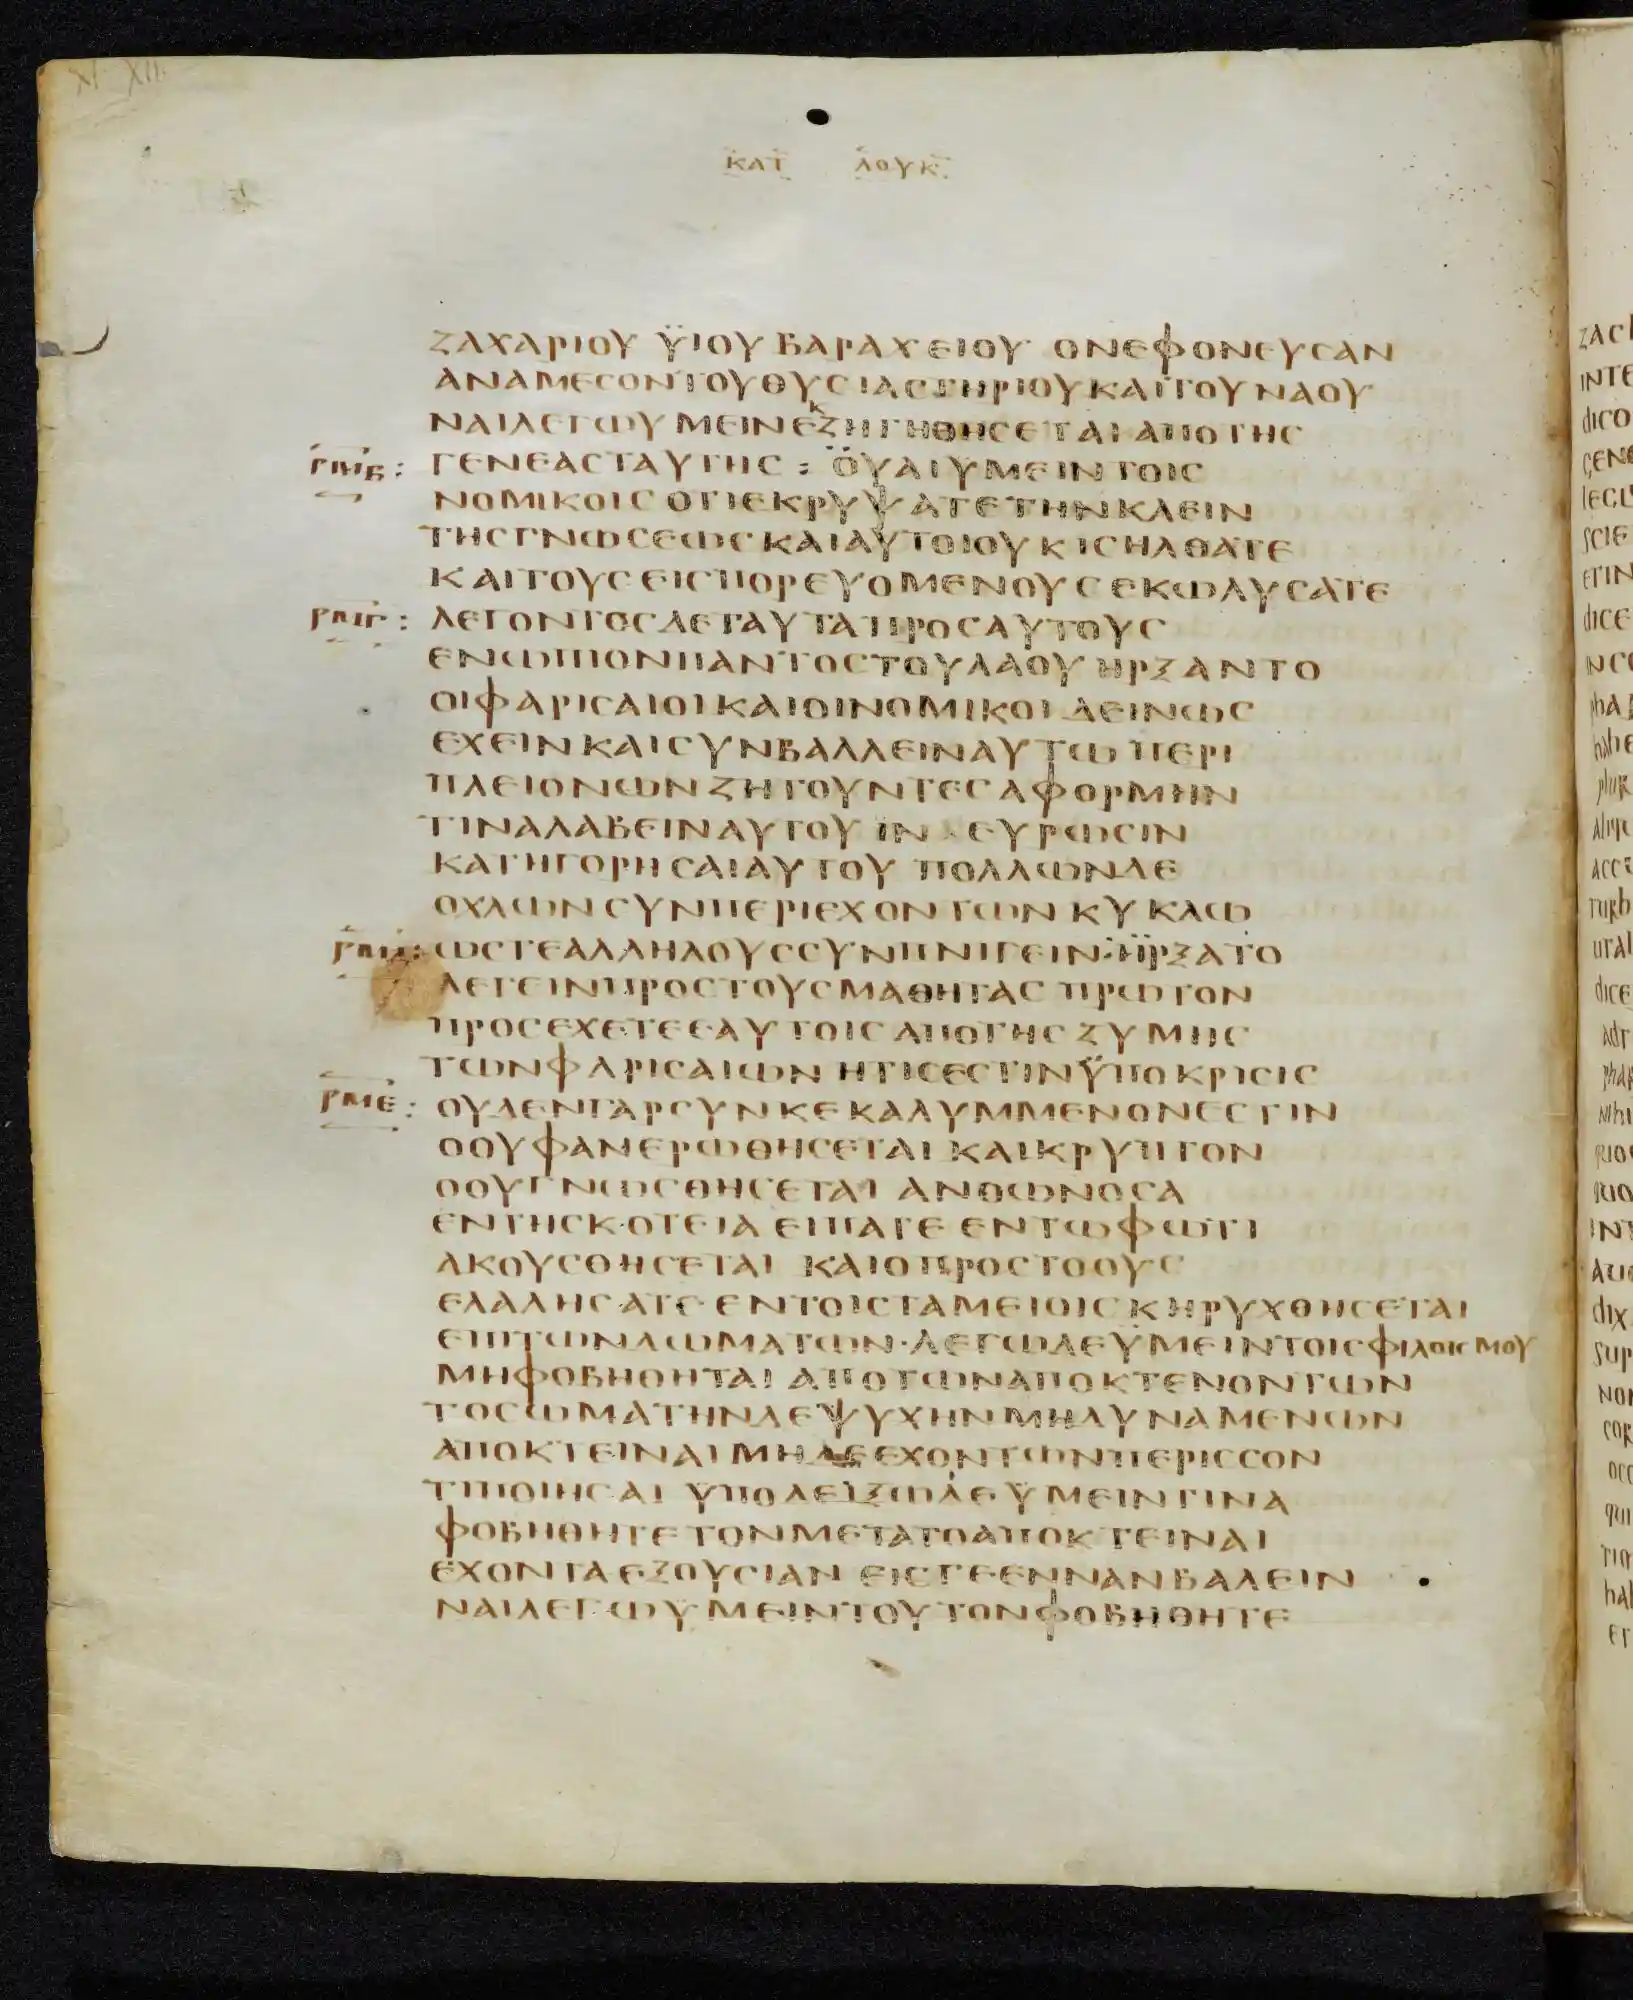 ΚΑΤ ΛΟΥΚ
ΖΑΧΑΡΙΟΥ ΫΙΟΥ ΒΑΡΑΧΕΙΟΥ ΟΝΕΦΟΝΕΥCΑΝ
ΑΝΑΜΕCΟΝΤΟΥΘΥCΙΑCΤΗΡΙΟΥΚΑΙΤΟΥΝΑΟΥ
ΝΑΙΛΕΓΩΥΜΕΙΝΕΚΖΗΤΗΘΗCΕΤΑΙΑΠΟΤΗC
ΡΜΒ: ΓΕΝΕΑCΤΑΥΤΗC : ΟΥΑΙΥΜΕΙΝΤΟΙC
ΝΟΜΙΚΟΙCΟΤΙΕΚΡΥΨΑΤΕΤΗΝΚΛΕΙΝ
ΤΗCΓΝΩCΕΩCΚΑΙΑΥΤΟΙΟΥΚΙCΗΛΘΑΤΕ
ΚΑΙΤΟΥCΕΙCΠΟΡΕΥΟΜΕΝΟΥCΕΚΩΛΥCΑΤΕ
ΡΜΓ: ΛΕΓΟΝΤΟCΔΕΤΑΥΤΑΠΡΟCΑΥΤΟΥC
ΕΝΩΠΙΟΝΠΑΝΤΟCΤΟΥΛΑΟΥ ΗΡΞΑΝΤΟ
ΟΙΦΑΡΙCΑΙΟΙΚΑΙΟΙΝΟΜΙΚΟΙΔΕΙΝΩC
ΕΧΕΙΝΚΑΙCΥΝΒΑΛΛΕΙΝΑΥΤΩ ΠΕΡΙ
ΠΛΕΙΟΝΩΝΖΗΤΟΥΝΤΕCΑΦΟΡΜΗΝ
ΤΙΝΑΛΑΒΕΙΝΑΥΤΟΥ ΙΝΑΕΥΡΩCΙΝ
ΚΑΤΗΓΟΡΗCΑΙΑΥΤΟΥ ΠΟΛΛΩΝΔΕ
ΟΧΛΩΝCΥΝΠΕΡΙΕΧΟΝΤΩΝ ΚΥΚΛΩ
ΡΜΔ: ΩCΤΕΑΛΛΗΛΟΥCCΥΝΠΝΙΓΕΙΝ·ΗΡΞΑΤΟ
ΛΕΓΕΙΝΠΡΟCΤΟΥCΜΑΘΗΤΑC ΠΡΩΤΟΝ
ΠΡΟCΕΧΕΤΕΕΑΥΤΟΙCΑΠΟΤΗCΖΥΜΗC
ΤΩΝΦΑΡΙCΑΙΩΝ ΗΤΙCΕCΤΙΝΫΠΟΚΡΙCΙC
ΡΜΕ: ΟΥΔΕΝΓΑΡCΥΝΚΕΚΑΛΥΜΜΕΝΟΝΕCΤΙΝ
ΟΟΥΦΑΝΕΡΩΘΗCΕΤΑΙ ΚΑΙΚΡΥΠΤΟΝ
ΟΟΥΓΝΩCΘΗCΕΤΑΙ ΑΝΘΩΝΟCΑ
ΕΝΤΗCΚΟΤΕΙΑ ΕΙΠΑΤΕ ΕΝΤΩΦΩΤΙ
ΑΚΟΥCΘΗCΕΤΑΙ ΚΑΙΟΠΡΟCΤΟΟΥC
ΕΛΑΛΗCΑΤΕ ΕΝΤΟΙCΤΑΜΕΙΟΙCΚΗΡΥΧΘΗCΕΤΑΙ
ΕΠΙΤΩΝΔΩΜΑΤΩΝ·ΛΕΓΩΔΕΫΜΕΙΝΤΟΙCΦΙΛΟΙCΜΟΥ
ΜΗΦΟΒΗΘΗΤΑΙ ΑΠΟΤΩΝΑΠΟΚΤΕΝΟΝΤΩΝ
ΤΟCΩΜΑΤΗΝΔΕΨΥΧΗΝΜΗΔΥΝΑΜΕΝΩΝ
ΑΠΟΚΤΕΙΝΑΙΜΗΔΕΕΧΟΝΤΩΝΠΕΡΙCCΟΝ
ΤΙΠΟΙΗCΑΙ ΥΠΟΔΕΙΞΩΔΕΫΜΕΙΝΤΙΝΑ
ΦΟΒΗΘΗΤΕΤΟΝΜΕΤΑΤΟΑΠΟΚΤΕΙΝΑΙ
ΕΧΟΝΤΑΕΞΟΥCΙΑΝ ΕΙCΓΕΕΝΝΑΝΒΑΛΕΙΝ
ΝΑΙΛΕΓΩΥΜΕΙΝΤΟΥΤΟΝΦΟΒΗΘΗΤΕ